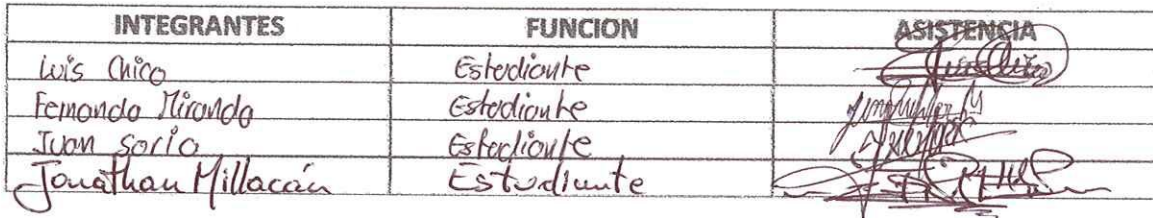 INTEGRANTES FUNCION ASISTENCIA
Luis Chico Estudiante
Fernando Miranda Estudiante
Juan Soria Estudiante
Jonathan Millacán Estudiante